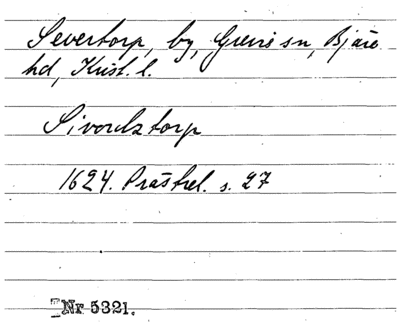 Severtorp, by, Grevie sn, Bjäre
hd, Krist. l.
Sivordztorp
1624. Prästrel. s. 27
Nr 5321.